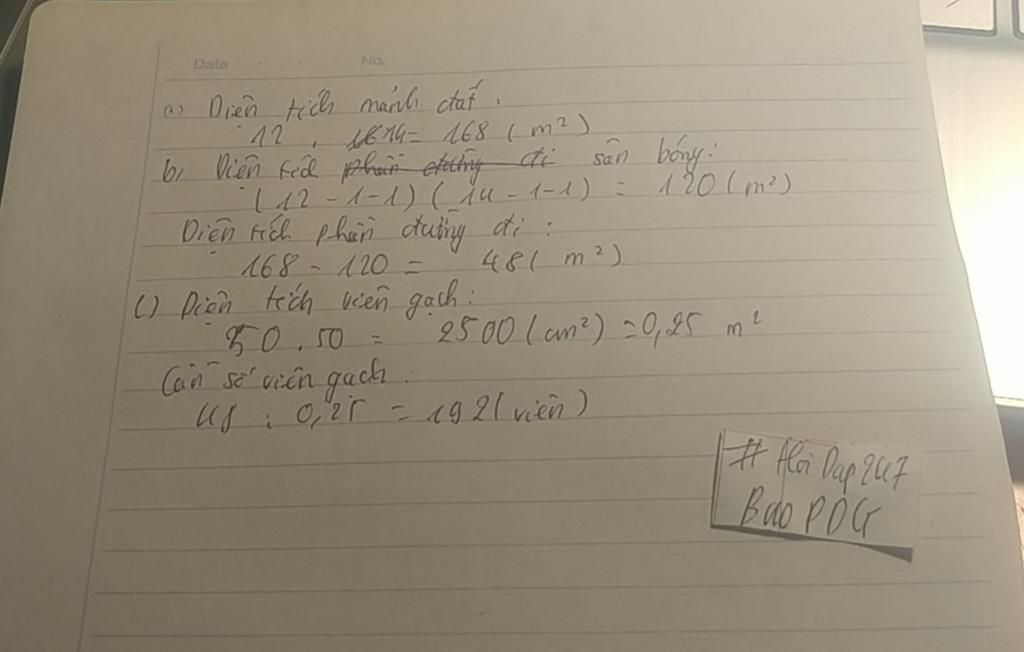 Date No.
a) Diện tích mảnh đất.
12 . 14 = 168 (m²)
b, Diện tích phần đường đi sân bóng:
(12 - 1 - 1) (14 - 1 - 1) = 120 (m²)
Diện tích phần đường đi:
168 - 120 = 48 (m²)
c) Diện tích viên gạch:
50 . 50 = 2500 (cm²) = 0,25 m²
Cần số viên gạch:
48 : 0,25 = 192 (viên)
# Hoi Dap 247
Bao PDG